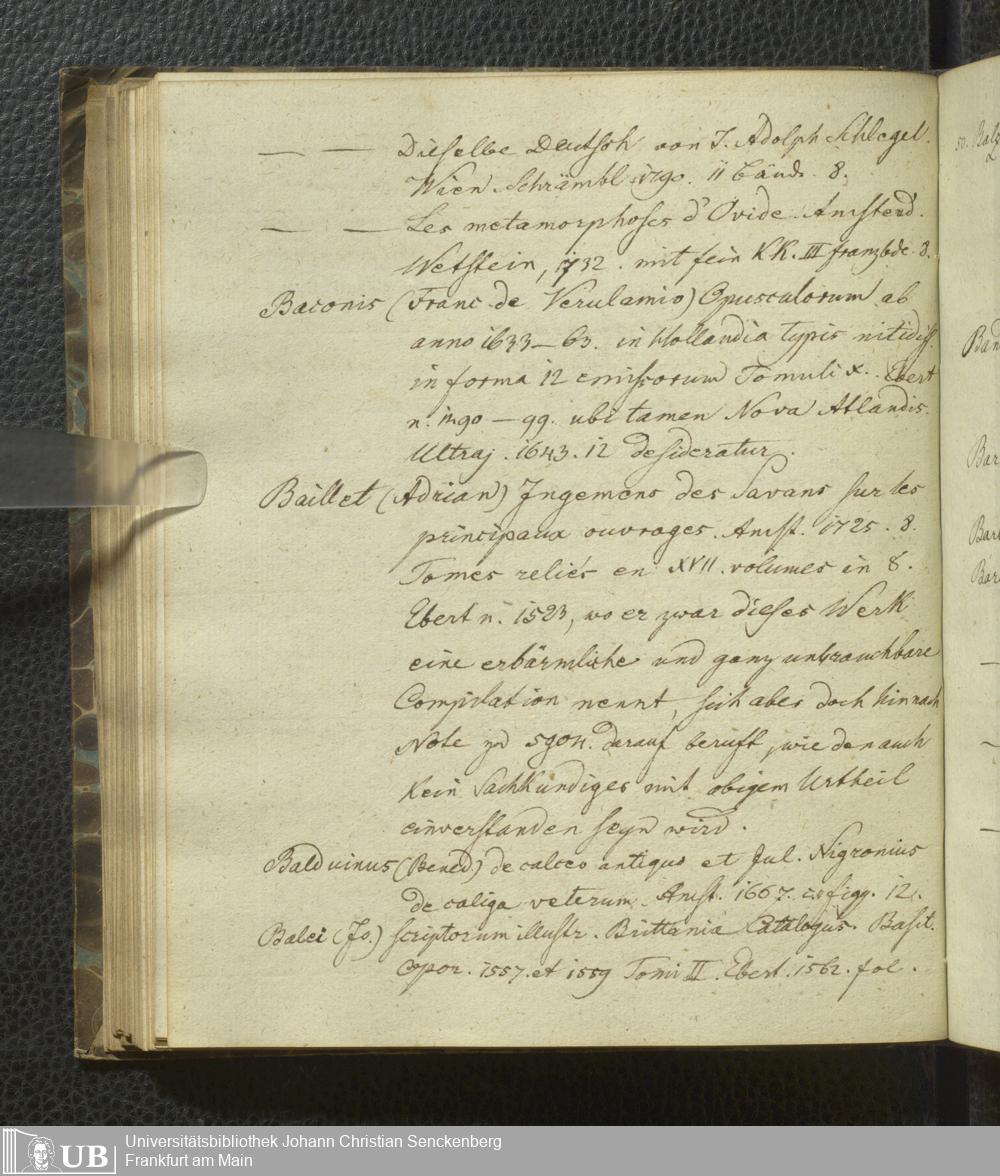 — — Dieselbe Deutsch von J. Adolph Schlegel.
Wien. Schrämbl. 1790. II Bände. 8.
— — Les metamorphoses d'Ovide. Amsterd.
Wetstein, 1732. mit fein K.K. III franzbde. 8.
Baconis (Franc. de Verulamio) Opusculorum ab
anno 1633–63. in Hollandia typis nitidiss.
in forma 12 emissorum Tomuli X. Ebert
n. 1490–99. ubi tamen Nova Atlandis.
Ultraj. 1643. 12 desideratur.
Baillet (Adrian) Jugemens des Savans sur les
principaux ouvrages. Amst. 1725. 8.
Tomes reliés en XVII. volumes in 8.
Ebert n. 1523, wo er zwar dieses Werk
eine erbärmliche und ganz unbrauchbare
Compilation nennt, sich aber doch hinnach
Note zu 5904. darauf beruft, wie den auch
kein Sachkundiger mit obigem Urtheil
einverstanden seyn wird.
Balduinus (Bened.) de calceo antiquo et Jul. Nigronius
de caliga veterum. Amst. 1667. c. figg. 12.
Balei (Jo.) scriptorum illustr. Brittania Catalogus. Basil.
Opor. 1557. et 1559 Tomi II. Ebert. 1562. fol.
Universitätsbibliothek Johann Christian Senckenberg
Frankfurt am Main
UB